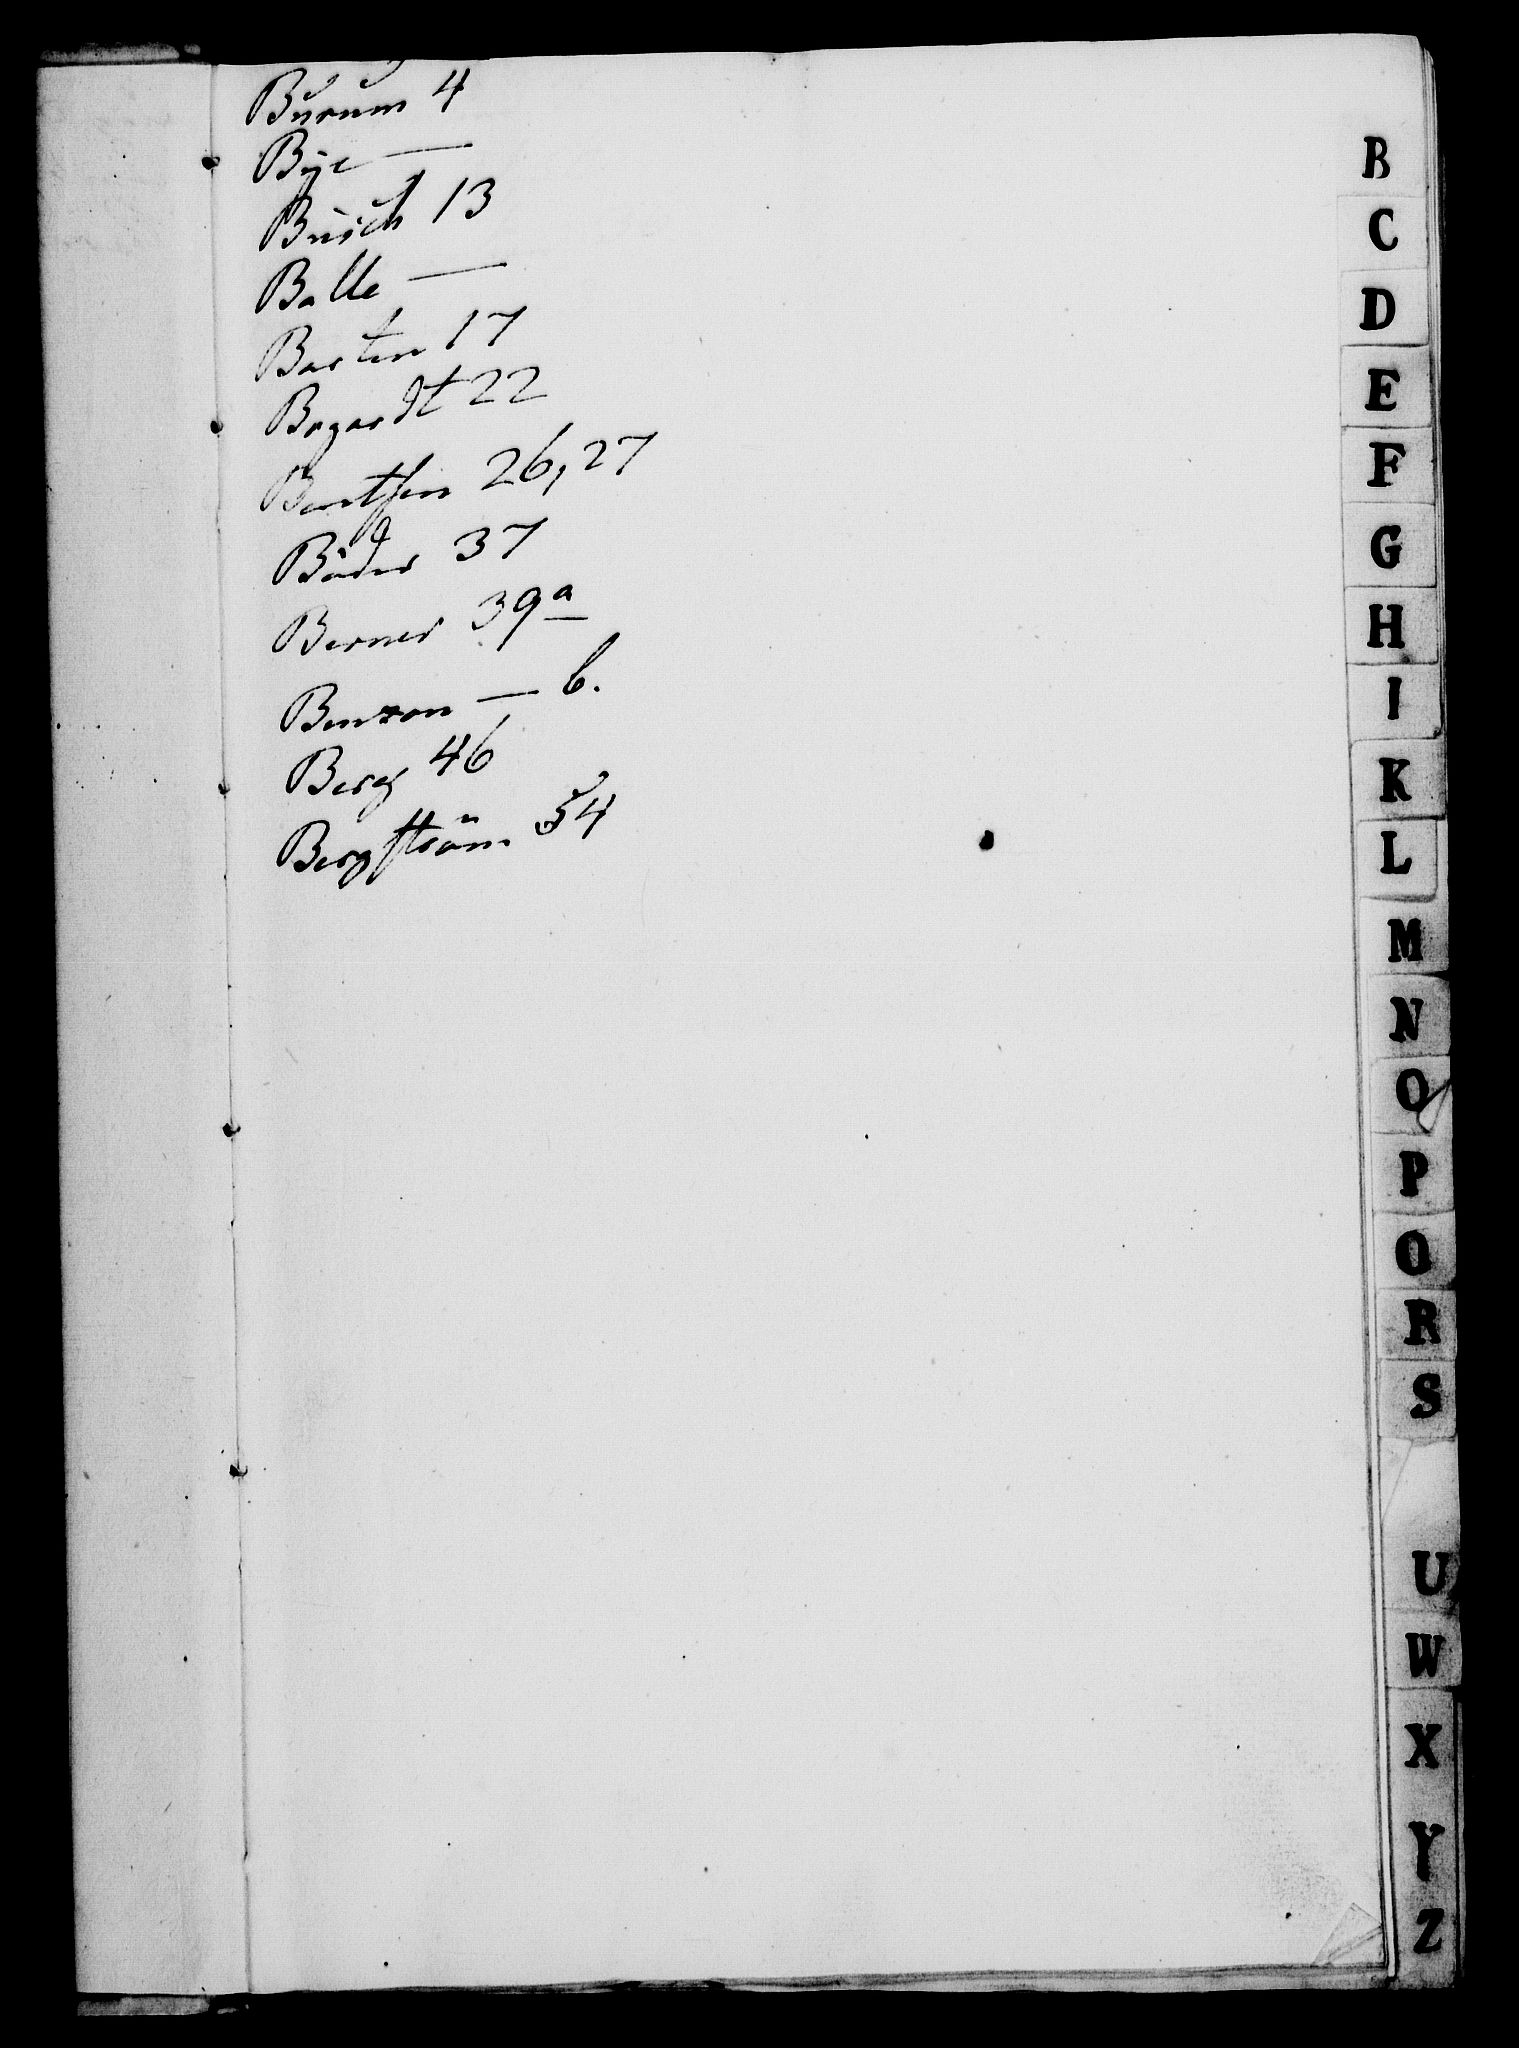 Burum 4
Bye —
Busch 13
Balle —
Barten 17
Bogardt 22
Berntsen 26, 27
Böder 37
Berner 39 a
Benzon — b.
Berg 46
Bergström 54
B
C
D
E
F
G
H
I
K
L
M
N
O
P
Q
R
S
U
W
X
Y
Z